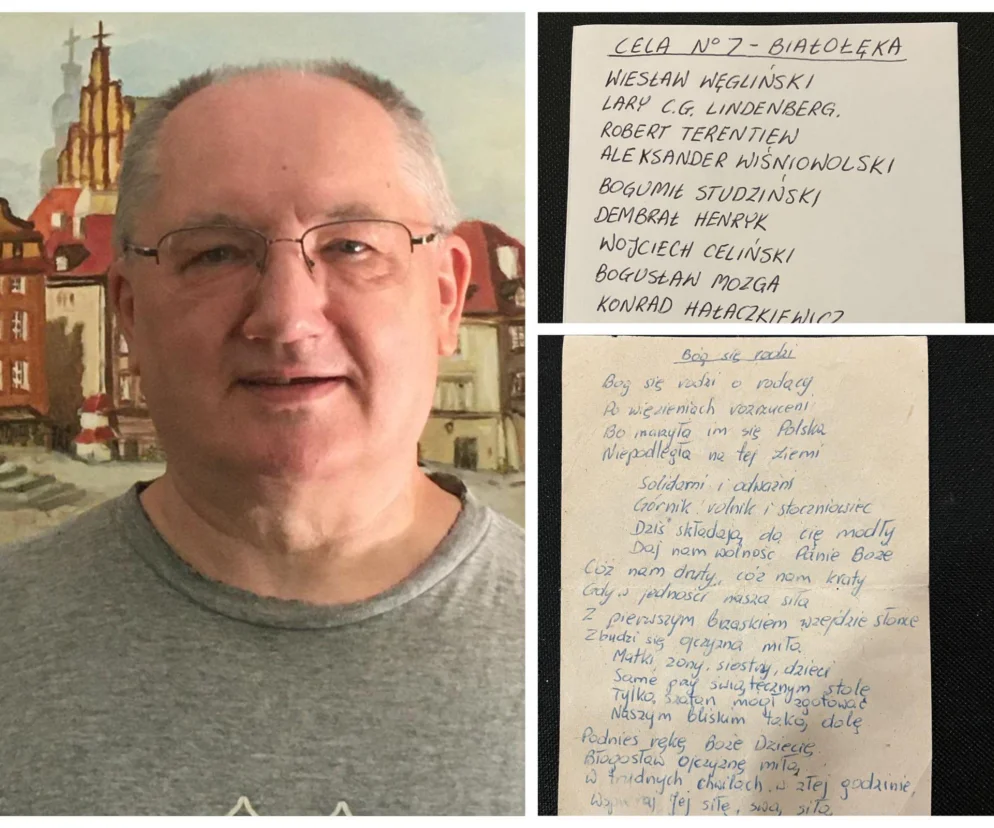 CELA Nº 7 - BIAŁOŁĘKA
WIESŁAW WĘGLIŃSKI
LARY C.G. LINDENBERG.
ROBERT TERENTIEW
ALEKSANDER WIŚNIOWOLSKI
BOGUMIŁ STUDZIŃSKI
DEMBRAŁ HENRYK
WOJCIECH CELIŃSKI
BOGUSŁAW MOZGA
KONRAD HAŁACZKIEWICZ
Bóg się rodzi
Bóg się rodzi o rodacy
Po więzieniach rozrzuceni
Bo marzyła im się Polska
Niepodległa na tej ziemi
Solidarni i odważni
Górnik rolnik i stoczniowiec
Dziś składają do cię modły
Daj nam wolność Panie Boże
Cóż nam druty, cóż nam kraty
Gdy w jedności nasza siła
Z pierwszym brzaskiem wzejdzie słońce
Zbudzi się ojczyzna miła
Matki, żony, siostry, dzieci
Same przy świątecznym stole
Tylko szatan mógł zgotować
Naszym bliskim taką dolę
Podnieś rękę Boże Dziecię
Błogosław Ojczyznę miłą,
w trudnych chwilach w złej godzinie,
Wspieraj jej siłę, swą siłą